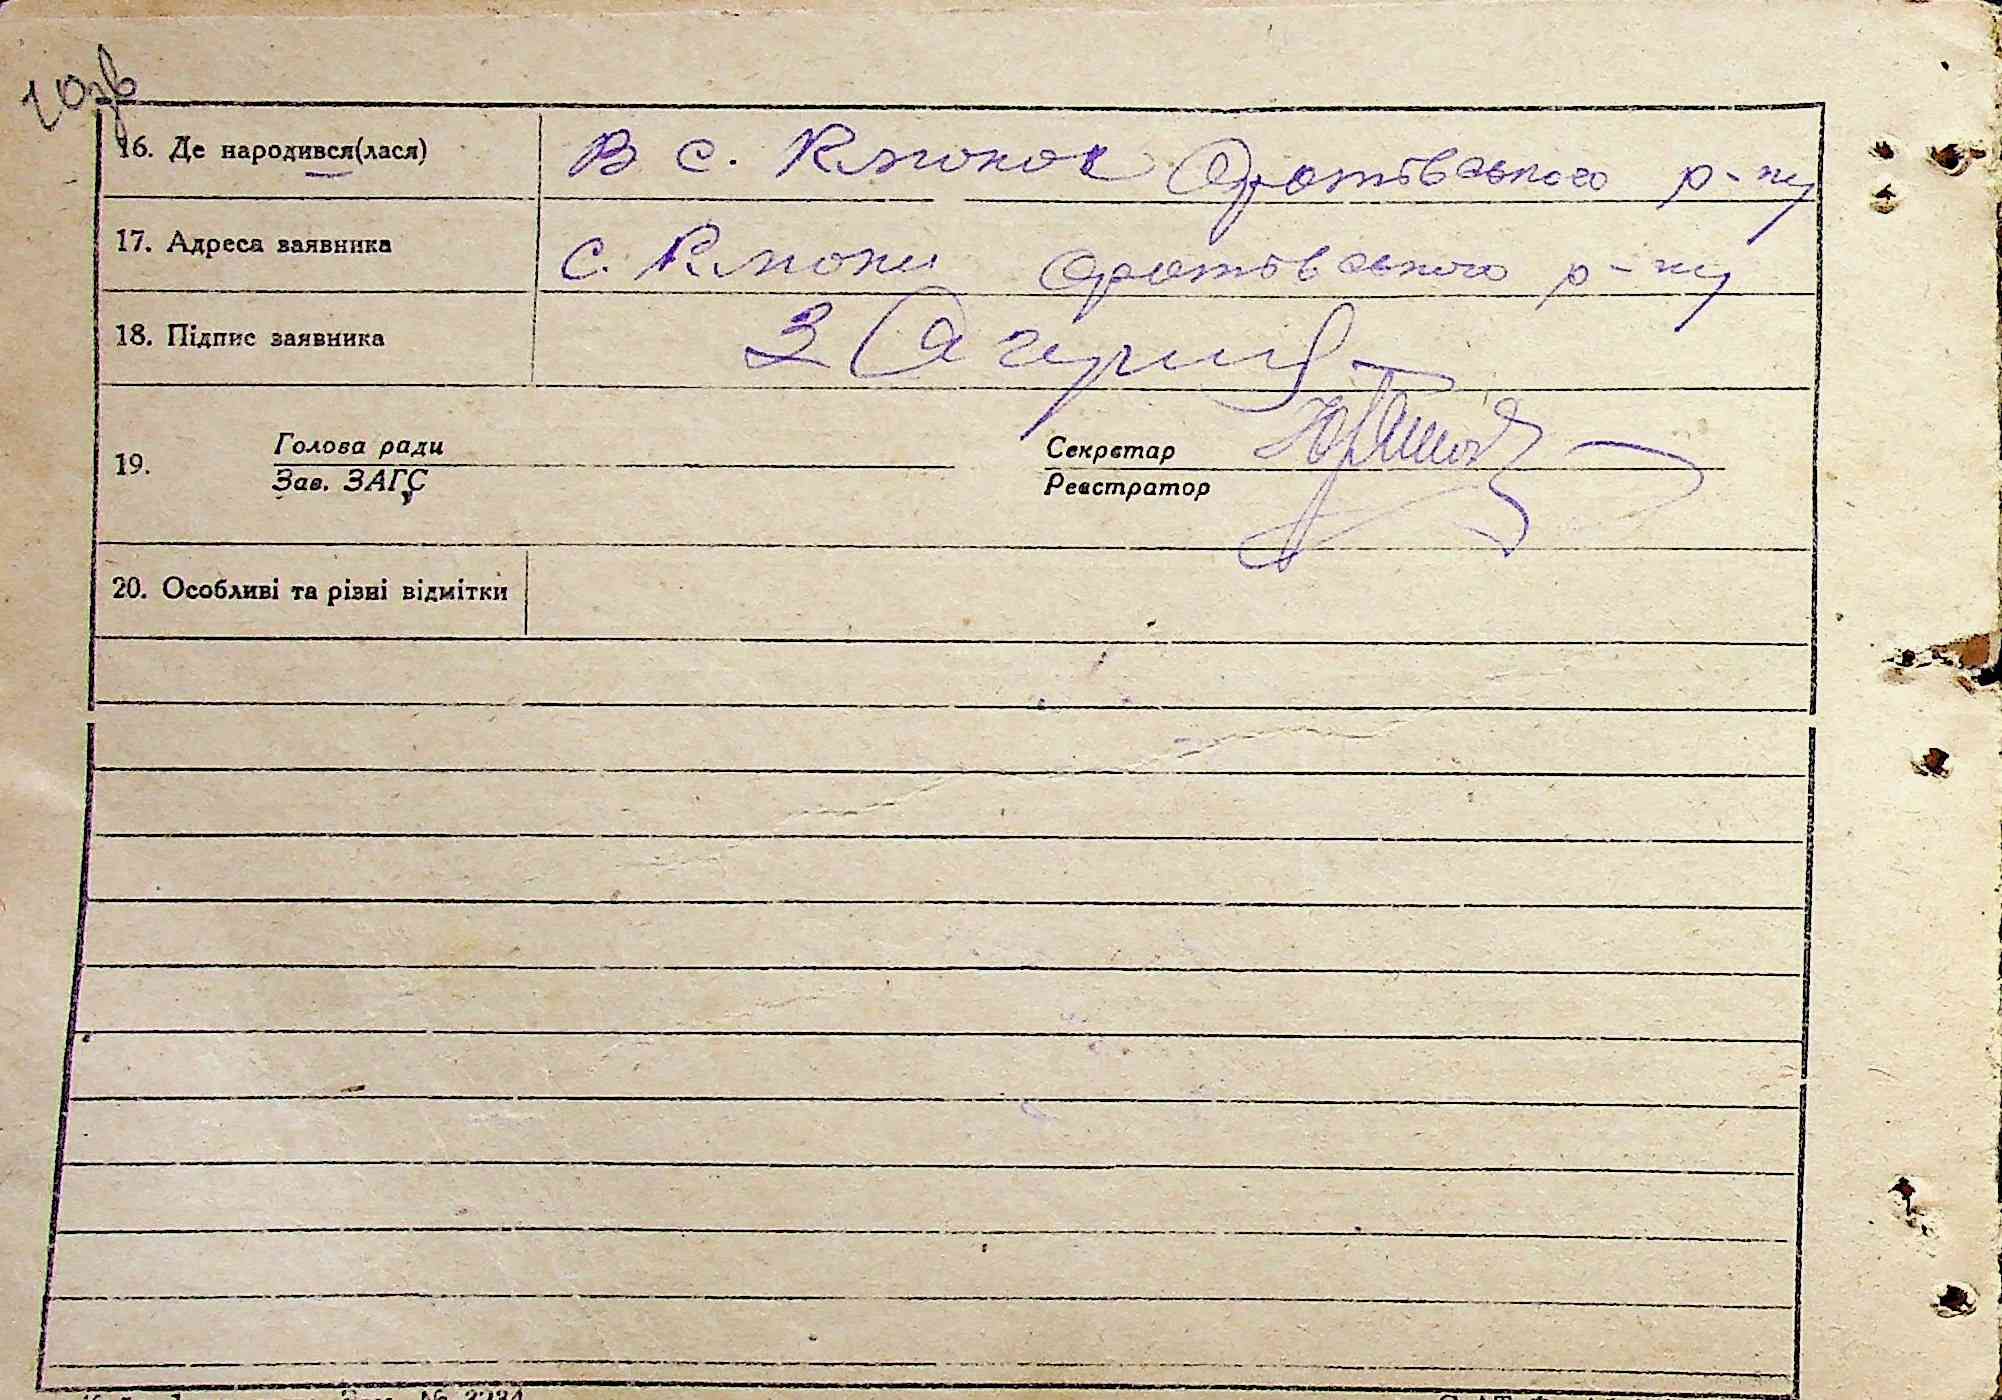 10зв
16. Де народився(лася) В с. Клюки Оратівського р-ну
17. Адреса заявника с. Клюки Оратівського р-ну
18. Підпис заявника
19. Голова ради Секретар
Зав. ЗАГС Реєстратор
20. Особливі та різні відмітки
№ 3234